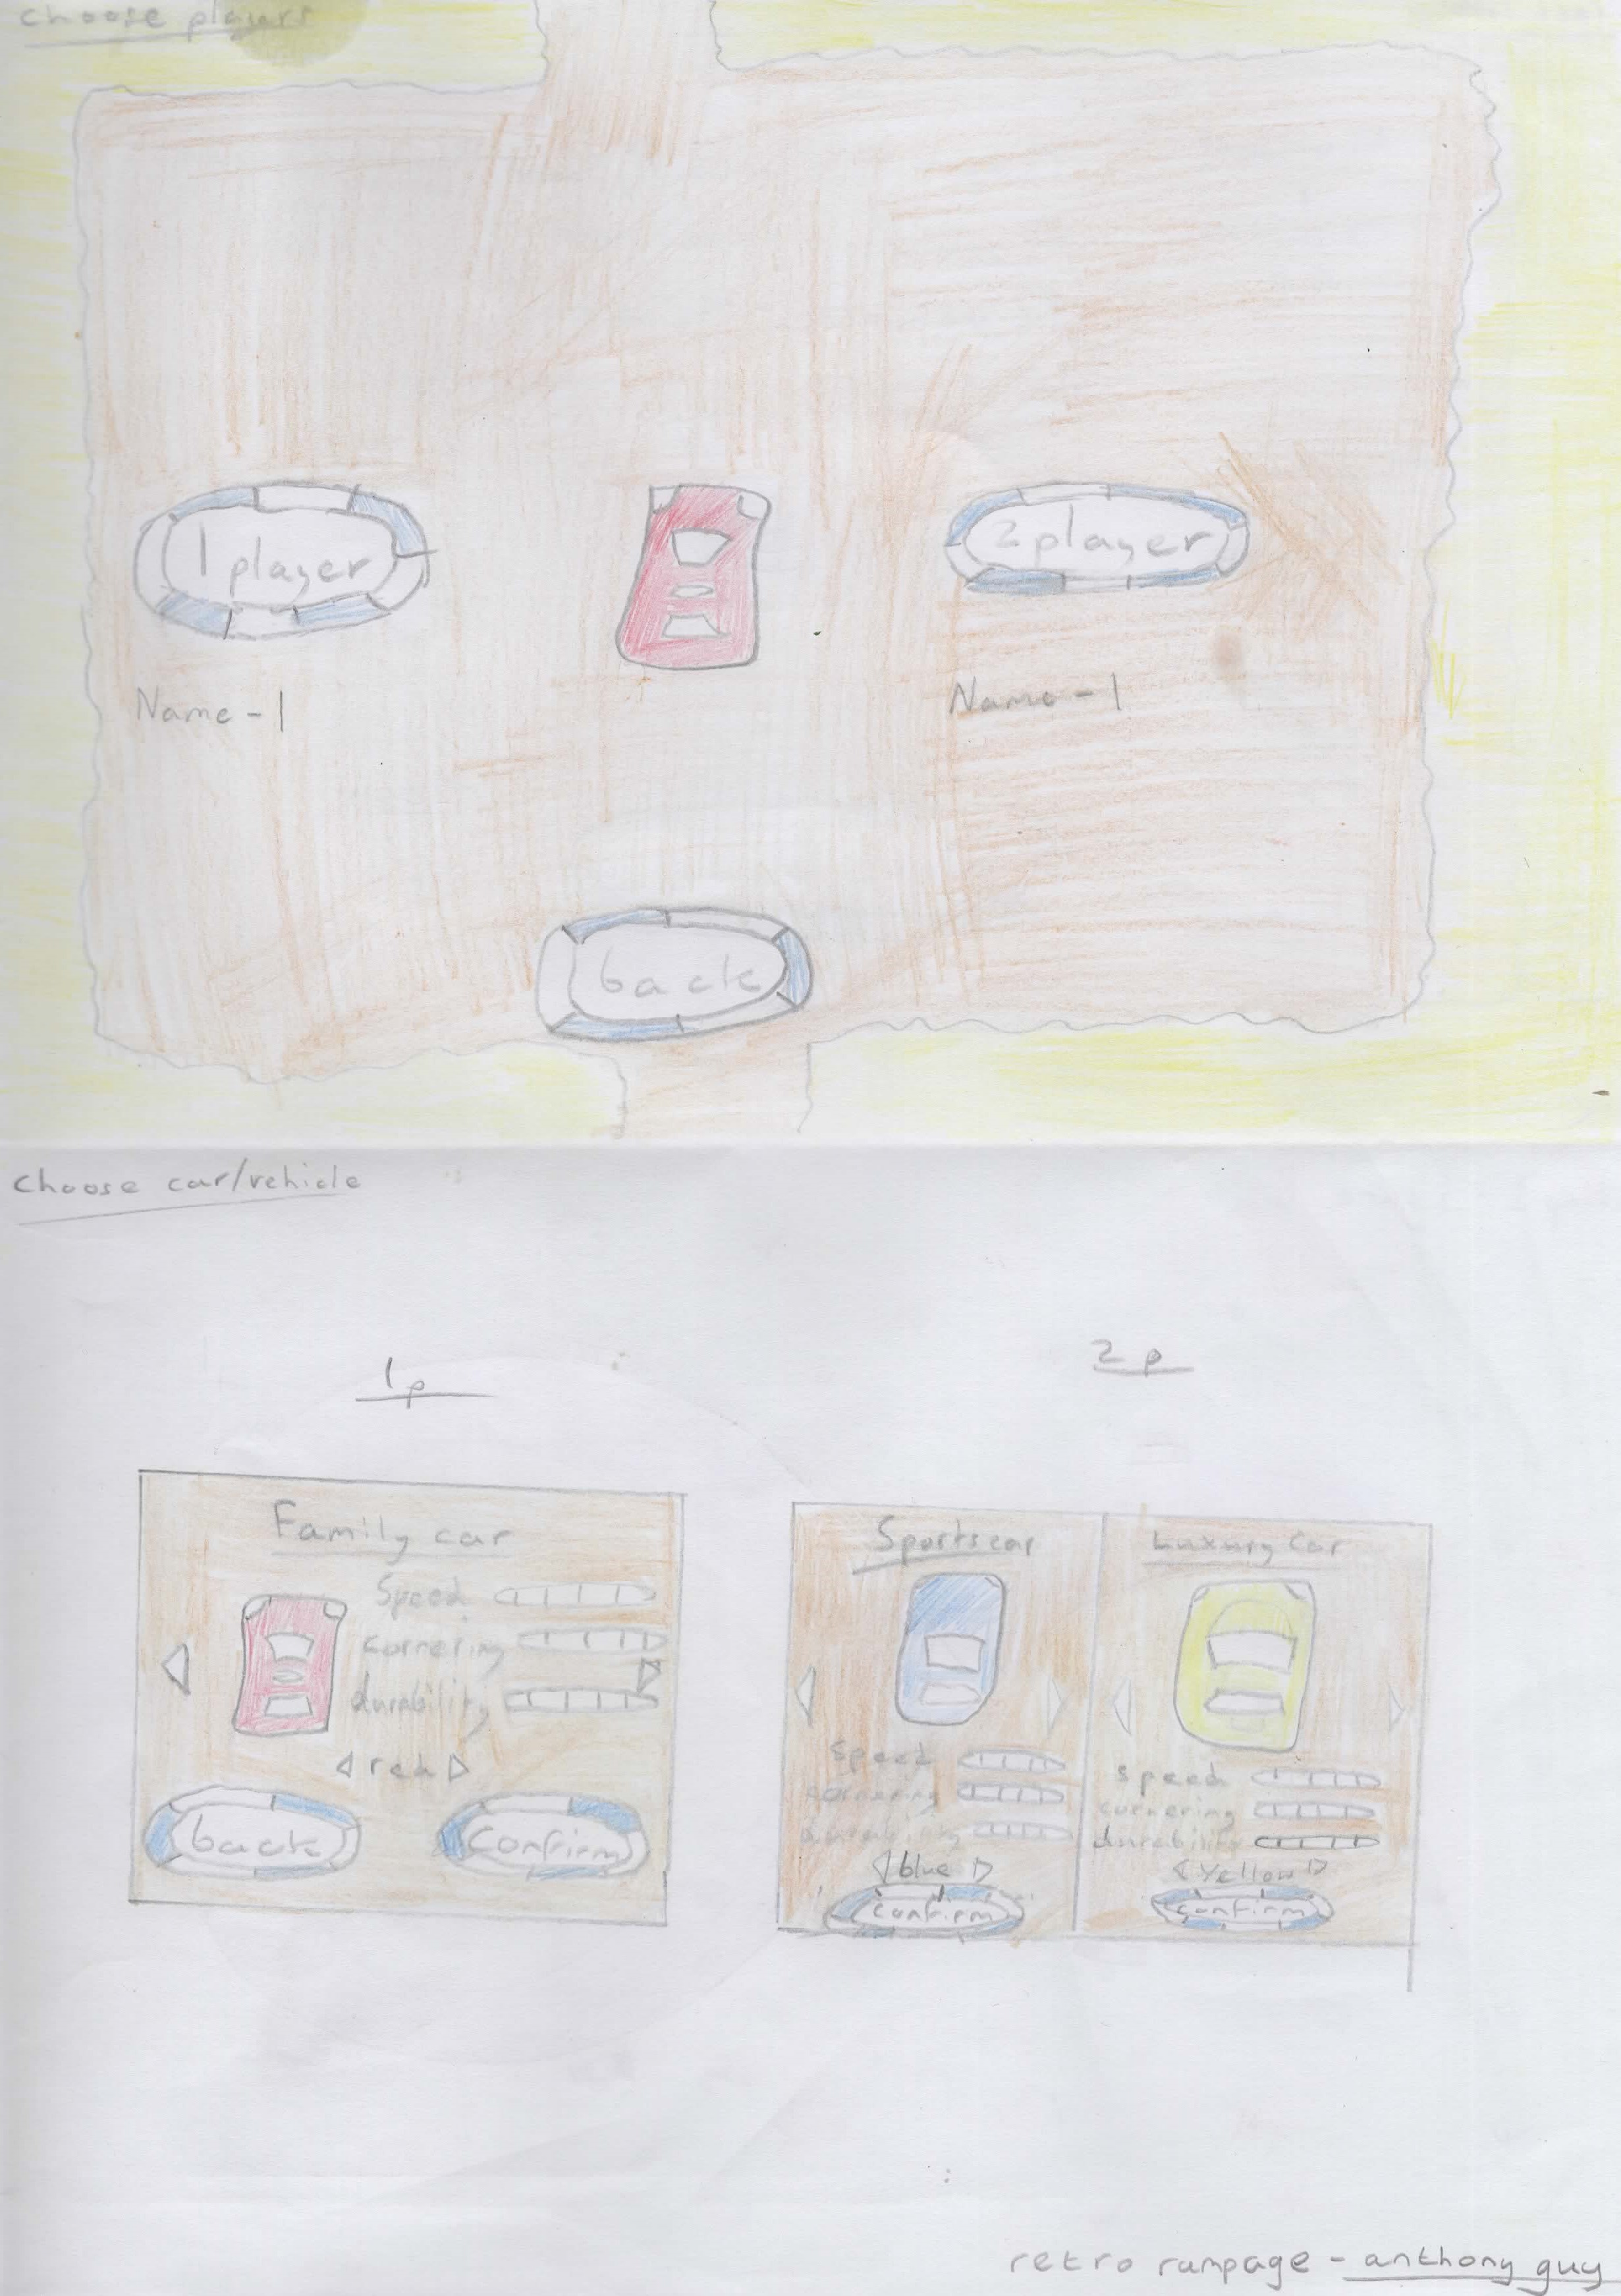 choose players
1 player
2 player
Name - 1
Name - 1
back
choose car/vehicle
1p
2p
Family car
Speed
cornering
durability
red
back
confirm
Sportscar
speed
cornering
durability
blue
confirm
Luxury Car
speed
cornering
durability
Yellow
confirm
retro rampage - anthony guy